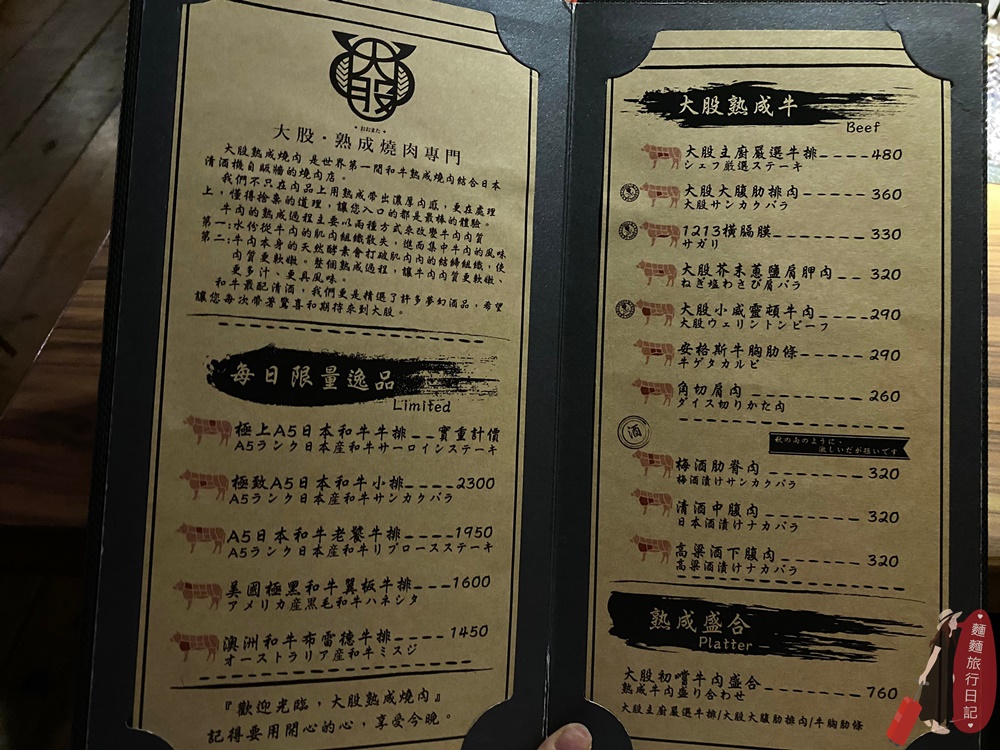 大股
おおまた
大股·熟成燒肉專門
大股熟成燒肉 是世界第一間和牛熟成燒肉結合日本
清酒機自販牆的燒肉店。
我們不只在肉品上用熟成帶出濃厚肉質，更在處理
上，懂得捨棄的道理，讓您入口的都是最棒的體驗。
牛肉的熟成過程主要以兩種方式來改變牛肉肉質
第一:水份從牛肉的肌肉組織散失，進而集中牛肉的風味
第二:牛肉本身的天然酵素會打破肌肉內的結締組織，使
肉質更軟嫩。整個熟成過程，讓牛肉肉質更軟嫩、
更多汁、更具風味。
和牛最配清酒，我們更是精選了許多夢幻酒品，希望
讓您每次帶著驚喜和期待來到大股。
每日限量逸品
Limited
極上A5日本和牛牛排__實重計價
A5ランク日本産和牛サーロインステーキ
極致A5日本和牛小排-----2300
A5ランク日本産和牛サンカクバラ
A5日本和牛老饕牛排----1950
A5ランク日本産和牛リブロースステーキ
美國極黑和牛翼板牛排---1600
アメリカ産黒毛和牛ハネシタ
澳洲和牛布雷德牛排-----1450
オーストラリア産和牛ミスジ
『歡迎光臨，大股熟成燒肉』
記得要用開心的心，享受今晚。
大股熟成牛
Beef
大股主廚嚴選牛排-----480
シェフ厳選ステーキ
大股大腹肋排肉------360
大股サンカクバラ
1213橫膈膜--------330
サガリ
大股芥末蔥鹽肩胛肉---320
ねぎ塩わさび肩バラ
大股小威靈頓牛肉-----290
大股ウェリントンビーフ
安格斯牛胸肋條------290
牛ゲタカルビ
角切肩肉---------260
ダイス切りかた肉
酒
秋の雨のように、
激しいだが短いです
梅酒肋脊肉--------320
梅酒漬けサンカクバラ
清酒中腹肉--------320
日本酒漬けナカバラ
高粱酒下腹肉-------320
高粱酒漬けナカバラ
熟成盛合
Platter
大股初嚐牛肉盛合-----760
熟成牛肉盛り合わせ
大股主廚嚴選牛排/大股大腹肋排肉/牛胸肋條
麵麵旅行日記